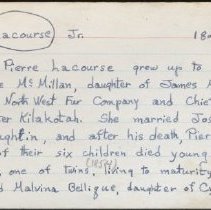 Lacourse Jr. 18
Pierre Lacourse grew up to
e McMillan, daughter of James M
North West Fur Company and Chief
ter Kilakotah. She married Jos
ughlin, and after his death, Pier
of their six children died young
(1854)
, one of twins, living to maturity
d Malvina Bellique, daughter of C